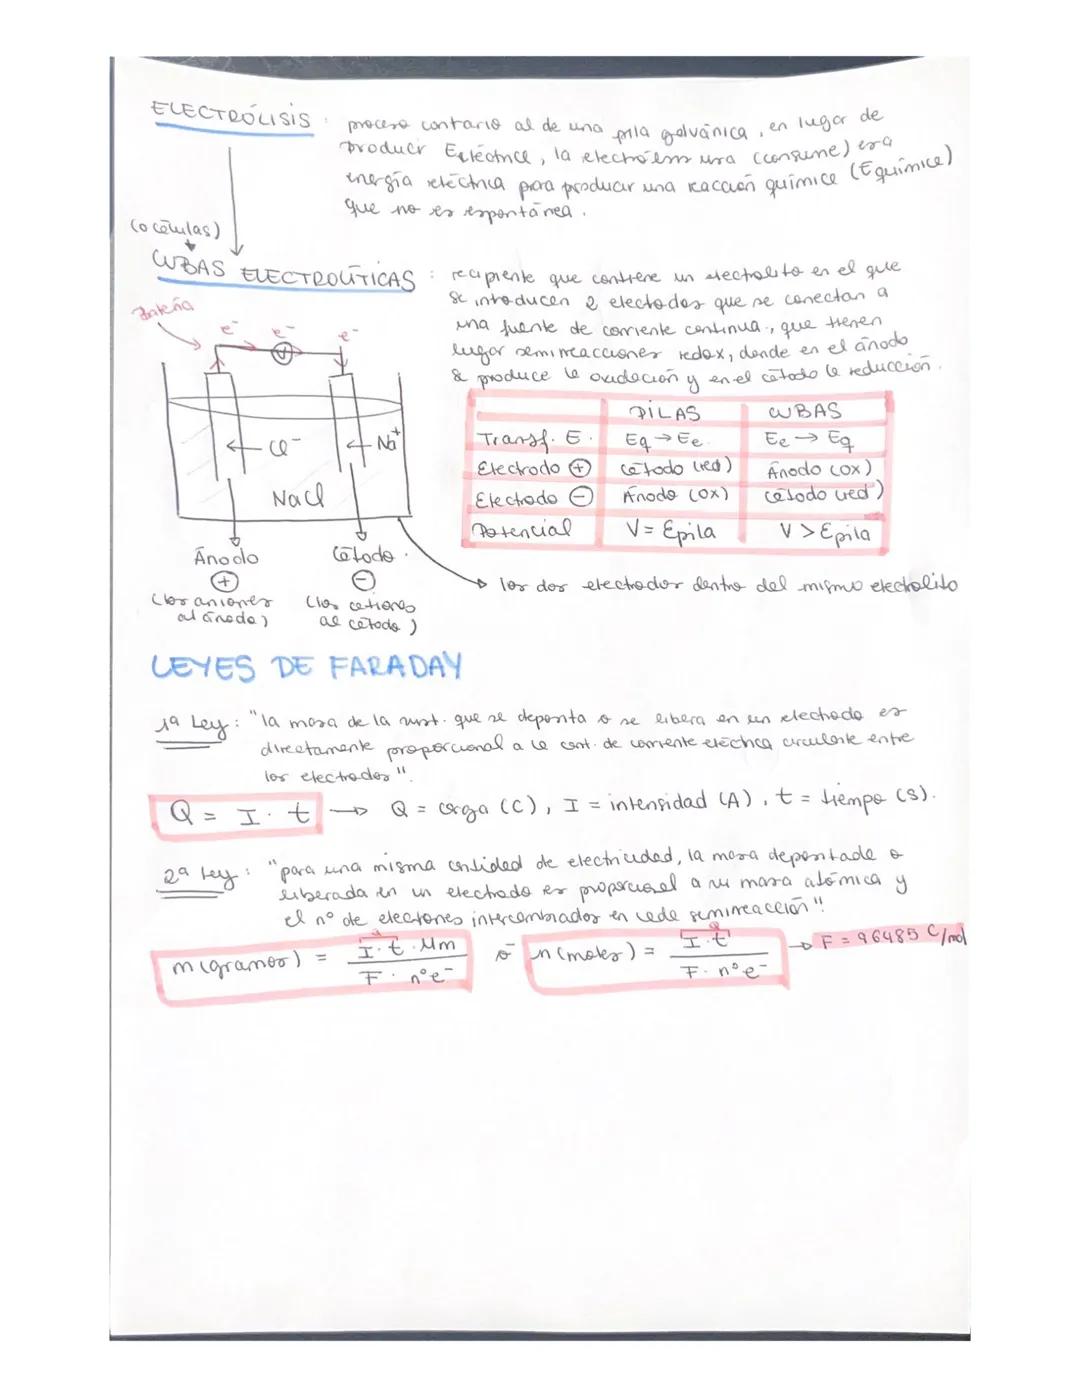 ELECTRÓLISIS : proceso contario al de una pila galvánica, en lugar de
producir Eeléctrica, la electrólisis usa (consume) esa
energía eléctrica para producir una reacción química (Equímica)
que no es espontánea.
(o células)
CUBAS ELECTROLÍTICAS : recipiente que contiene un electrolito en el que
se introducen 2 electrodos que se conectan a
una fuente de corriente continua, que tienen
lugar semirreacciones redox, donde en el ánodo
se produce la oxidación y en el cátodo la reducción.
Batería
e- e- e-
V
Cl- Na+
NaCl
Ánodo Cátodo
+ -
(los aniones (los cationes
al ánodo) al cátodo)
PILAS CUBAS
Transf. E. Eq → Ee. Ee → Eq
Electrodo + Cátodo (red) Ánodo (ox)
Electrodo - Ánodo (ox) Cátodo (red)
Potencial V = Epila V > Epila
los dos electrodos dentro del mismo electrolito
LEYES DE FARADAY
1ª Ley : "la masa de la sust. que se deposita o se libera en un electrodo es
directamente proporcional a la cant. de corriente eléctrica circulante entre
los electrodos".
Q = I · t → Q = carga (C), I = intensidad (A), t = tiempo (s).
2ª Ley : "para una misma cantidad de electricidad, la masa depositada o
liberada en un electrodo es proporcional a su masa atómica y
el nº de electrones intercambiados en cada semirreacción".
Q Q
m (gramos) = I · t · Mm / F · nºe- ó n (moles) = I · t / F · nºe- → F = 96485 C/mol